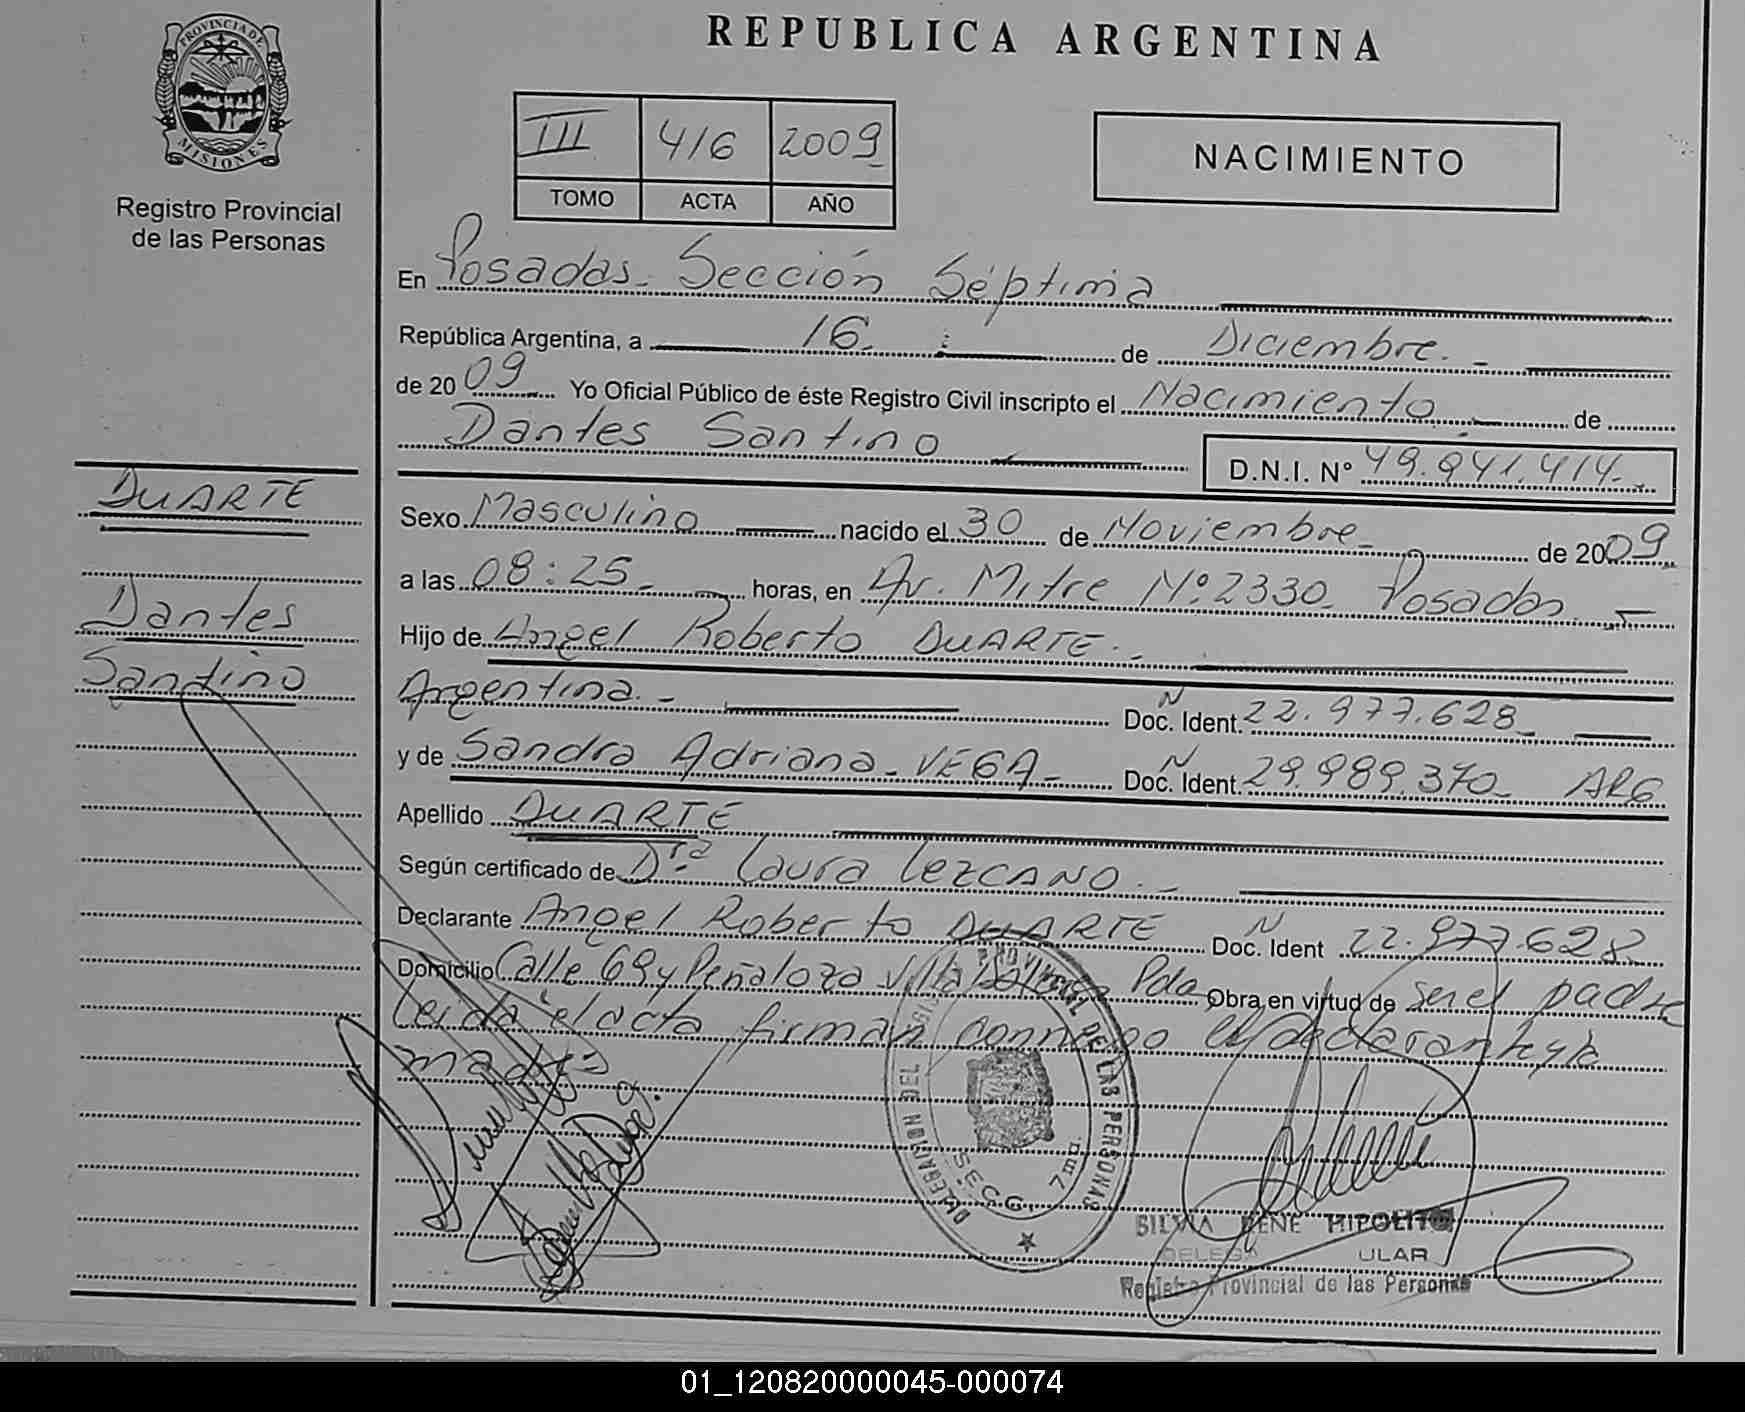 REPUBLICA ARGENTINA
PROVINCIA DE
MISIONES
Registro Provincial
de las Personas
III 416 2009
TOMO ACTA AÑO
NACIMIENTO
En Posadas - Sección Séptima
República Argentina, a 16 de Diciembre
de 2009 Yo Oficial Público de éste Registro Civil inscripto el Nacimiento de
Dantes Santino D.N.I. N° 49.941.414.-
DUARTE
Dantes
Santino
Sexo Masculino nacido el 30 de Noviembre de 2009
a las 08:25 horas, en Av. Mitre N° 2330 Posadas
Hijo de Angel Roberto DUARTE.-
Argentina.- Doc. Ident. N 22.977.628
y de Sandra Adriana VEGA Doc. Ident. N 29.989.370 ARG
Apellido DUARTE
Según certificado de Dra Laura LEZCANO.-
Declarante Angel Roberto DUARTE Doc. Ident N 22.977.628
Domicilio Calle 69 y Peñaloza Villa Pda Obra en virtud de ser el padre
Leida el acta firman conmigo el declarante y la
madre
DELEGACION DEL REGISTRO PROVINCIAL DE LAS PERSONAS
SECC. 7ma.
SILVIA IRENE HIPOLITO
ULAR
Registro Provincial de las Personas
01_120820000045-000074